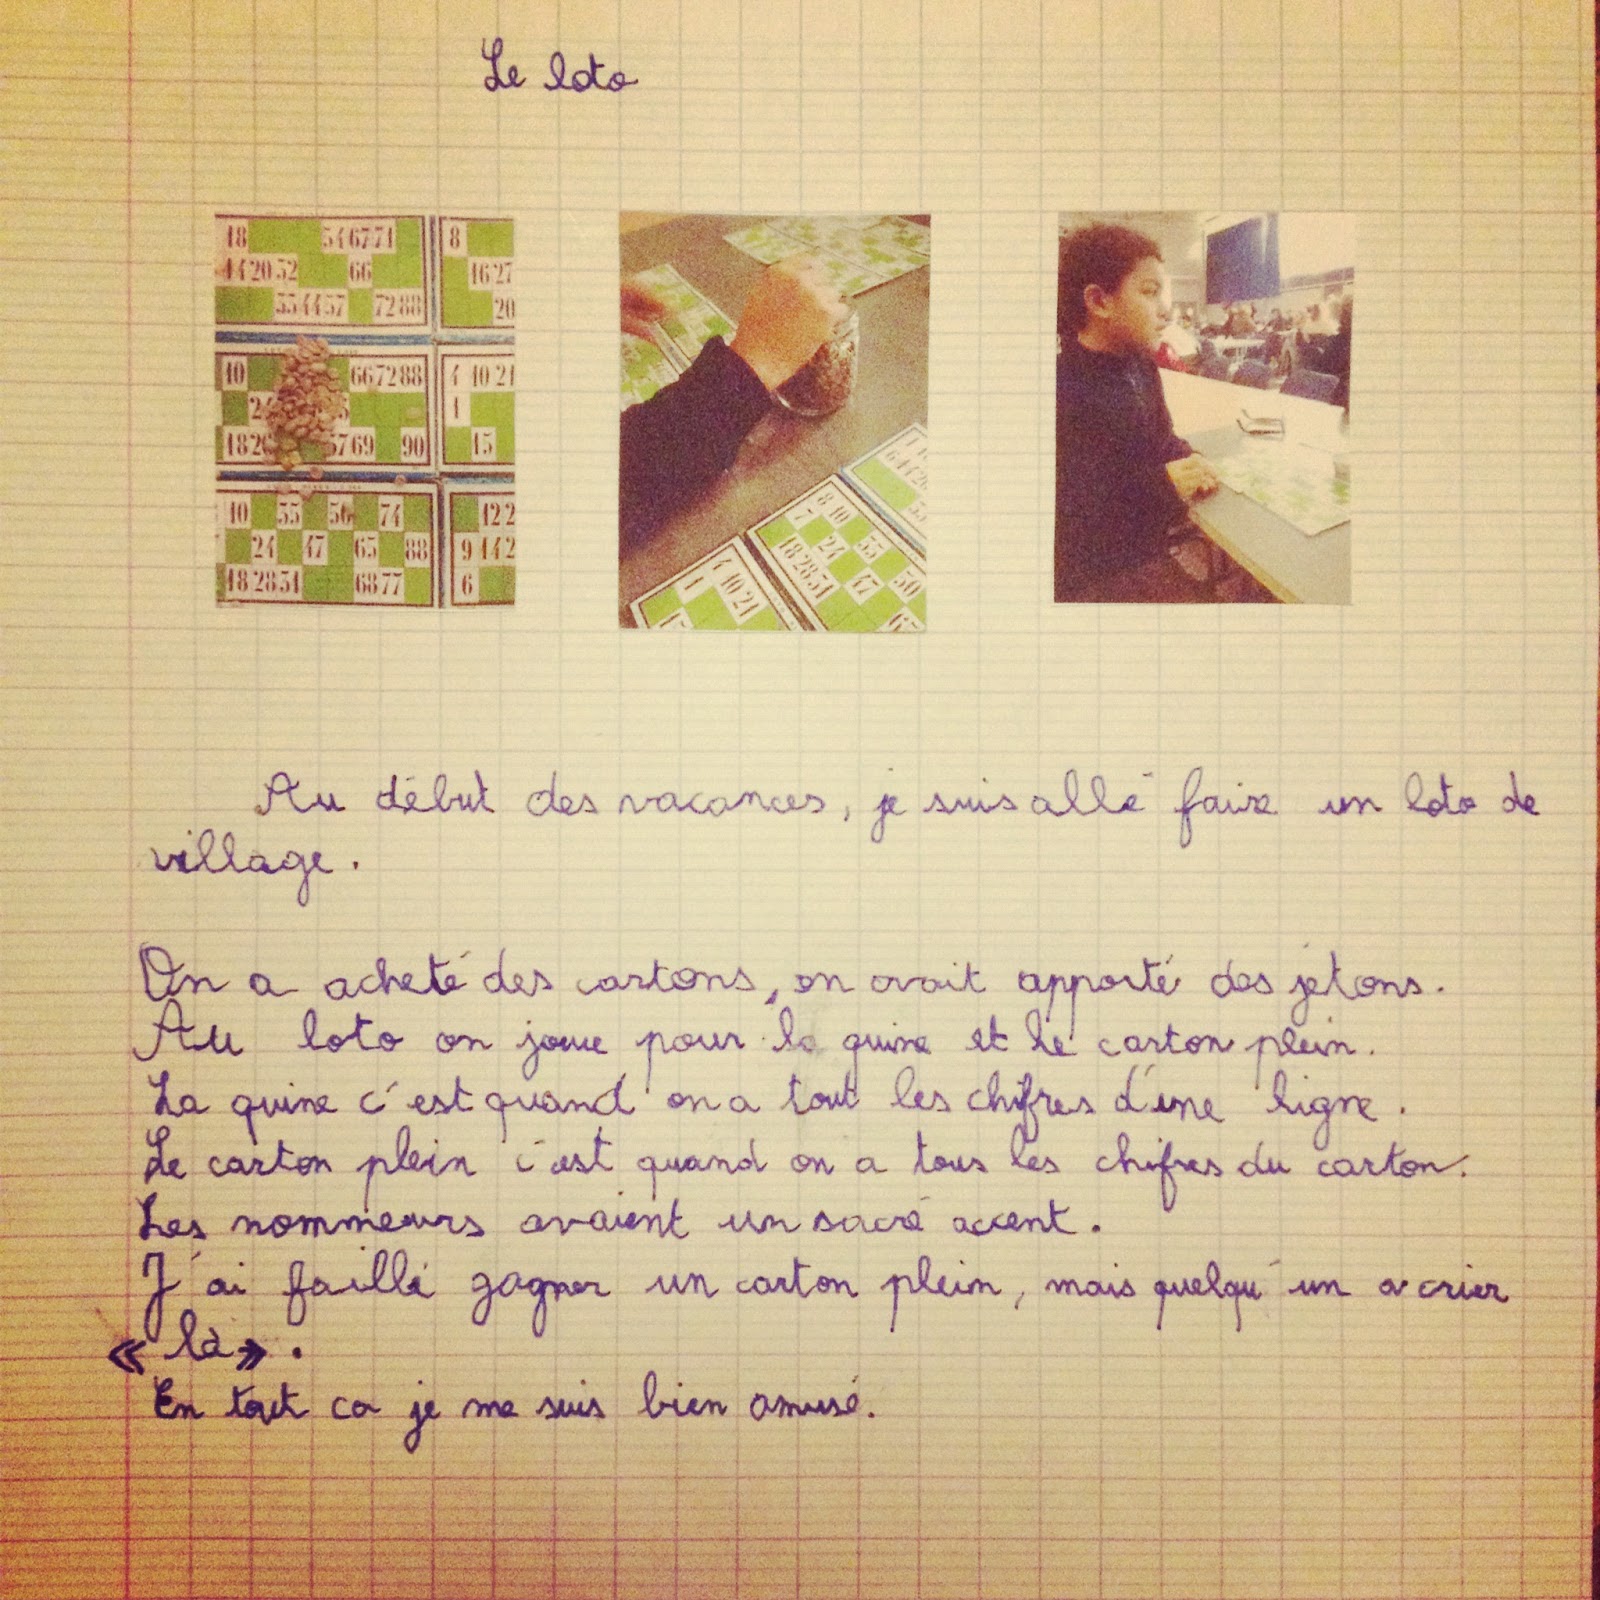 Le loto
18 54 67 71 8
14 20 52 66 16 27
35 44 57 72 88 20
10 66 72 88 4 10 21
1
18 57 69 90 15
10 35 56 74 12
24 47 65 88 9 14
18 28 31 68 77 6
8 10
7 24 35
18 28 31 47 50
4 10 21
1
Au début des vacances, je suis allé faire un loto de
village.
On a acheté des cartons, on avait apporté des jetons.
Au loto on joue pour la quine et le carton plein.
La quine c'est quand on a tout les chifres d'une ligne.
Le carton plein c'est quand on a tous les chifres du carton.
Les nommeurs avaient un sacré accent.
J'ai faillé gagner un carton plein, mais quelqu'un a crier
« là ».
En tout ca je me suis bien amusé.